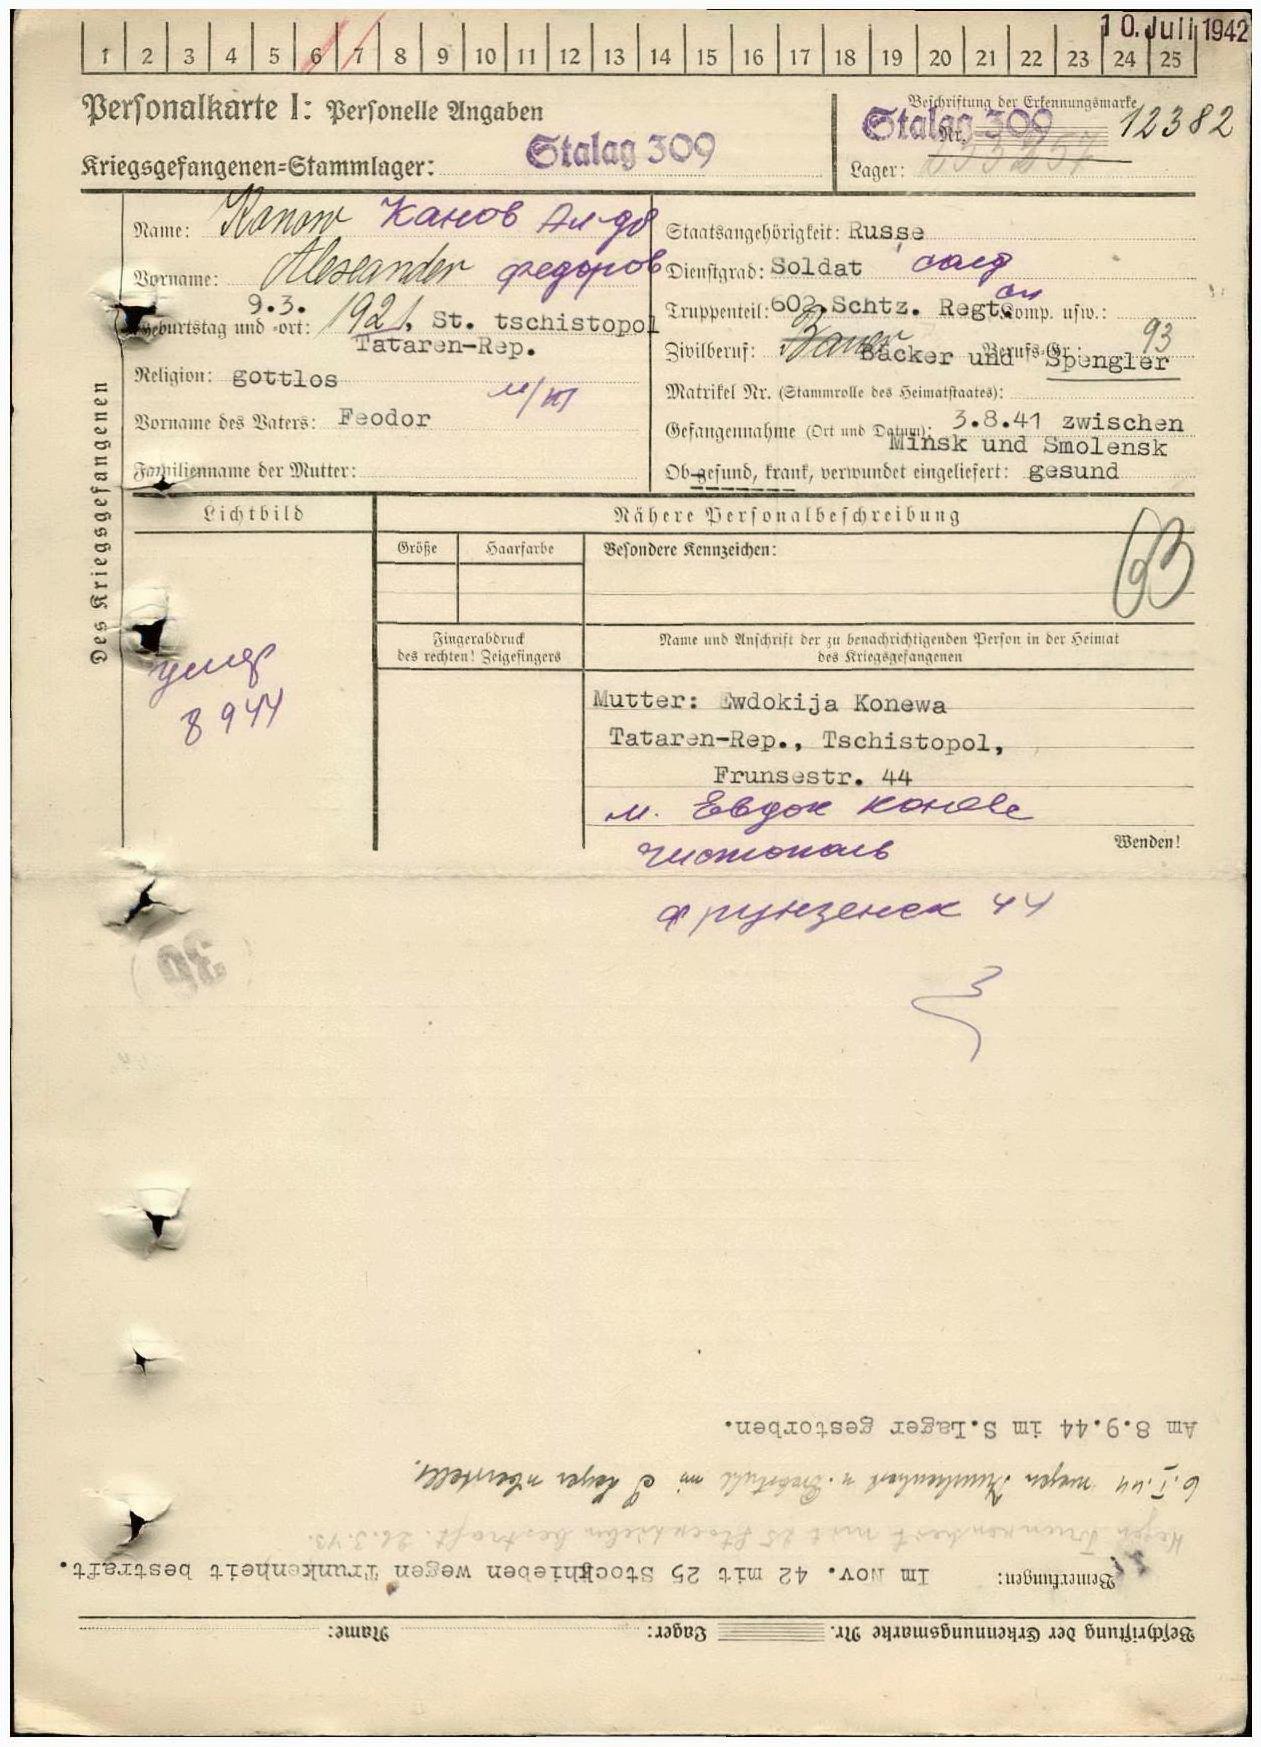 10. Juli 1942
1 2 3 4 5 6 7 8 9 10 11 12 13 14 15 16 17 18 19 20 21 22 23 24 25
Personalkarte I: Personelle Angaben
Beschriftung der Erkennungsmarke
Stalag 309
Nr. 12382
Kriegsgefangenen=Stammlager: Stalag 309
Lager:
Des Kriegsgefangenen
Name: Konow Канов Ал-др
Vorname: Alexander Федоров
Geburtstag und =ort: 9.3. 1921, St. tschistopol
Tataren-Rep.
Religion: gottlos
Vorname des Vaters: Feodor
Familienname der Mutter:
Staatsangehörigkeit: Russe
Dienstgrad: Soldat солд
Truppenteil: 602. Schtz. Regt. Comp. usw.: сп
Zivilberuf: Bauer Bäcker und Spengler Berufs-Gr.: 93
Matrikel Nr. (Stammrolle des Heimatstaates):
Gefangennahme (Ort und Datum): 3.8.41 zwischen
Minsk und Smolensk
Ob gesund, krank, verwundet eingeliefert: gesund
Lichtbild
Nähere Personalbeschreibung
Größe
Haarfarbe
Besondere Kennzeichen:
93
Fingerabdruck
des rechten! Zeigefingers
Name und Anschrift der zu benachrichtigenden Person in der Heimat
des Kriegsgefangenen
умер
8 9 44
Mutter: Ewdokija Konewa
Tataren-Rep., Tschistopol,
Frunsestr. 44
м. Евдок Конове
Чистополь
Фрунзенск 44
Wenden!
30
Beschriftung der Erkennungsmarke Nr. Lager: Name:
Bemerkungen: Im Nov. 42 mit 25 Stockhieben wegen Trunkenheit bestraft.
Wegen Trunkenheit mit 25 Stockhieben bestraft. 26.3.43.
6.I.44 wegen Trunkenheit u. Diebstahl ins S Lager überstellt.
Am 8.9.44 im S.Lager gestorben.